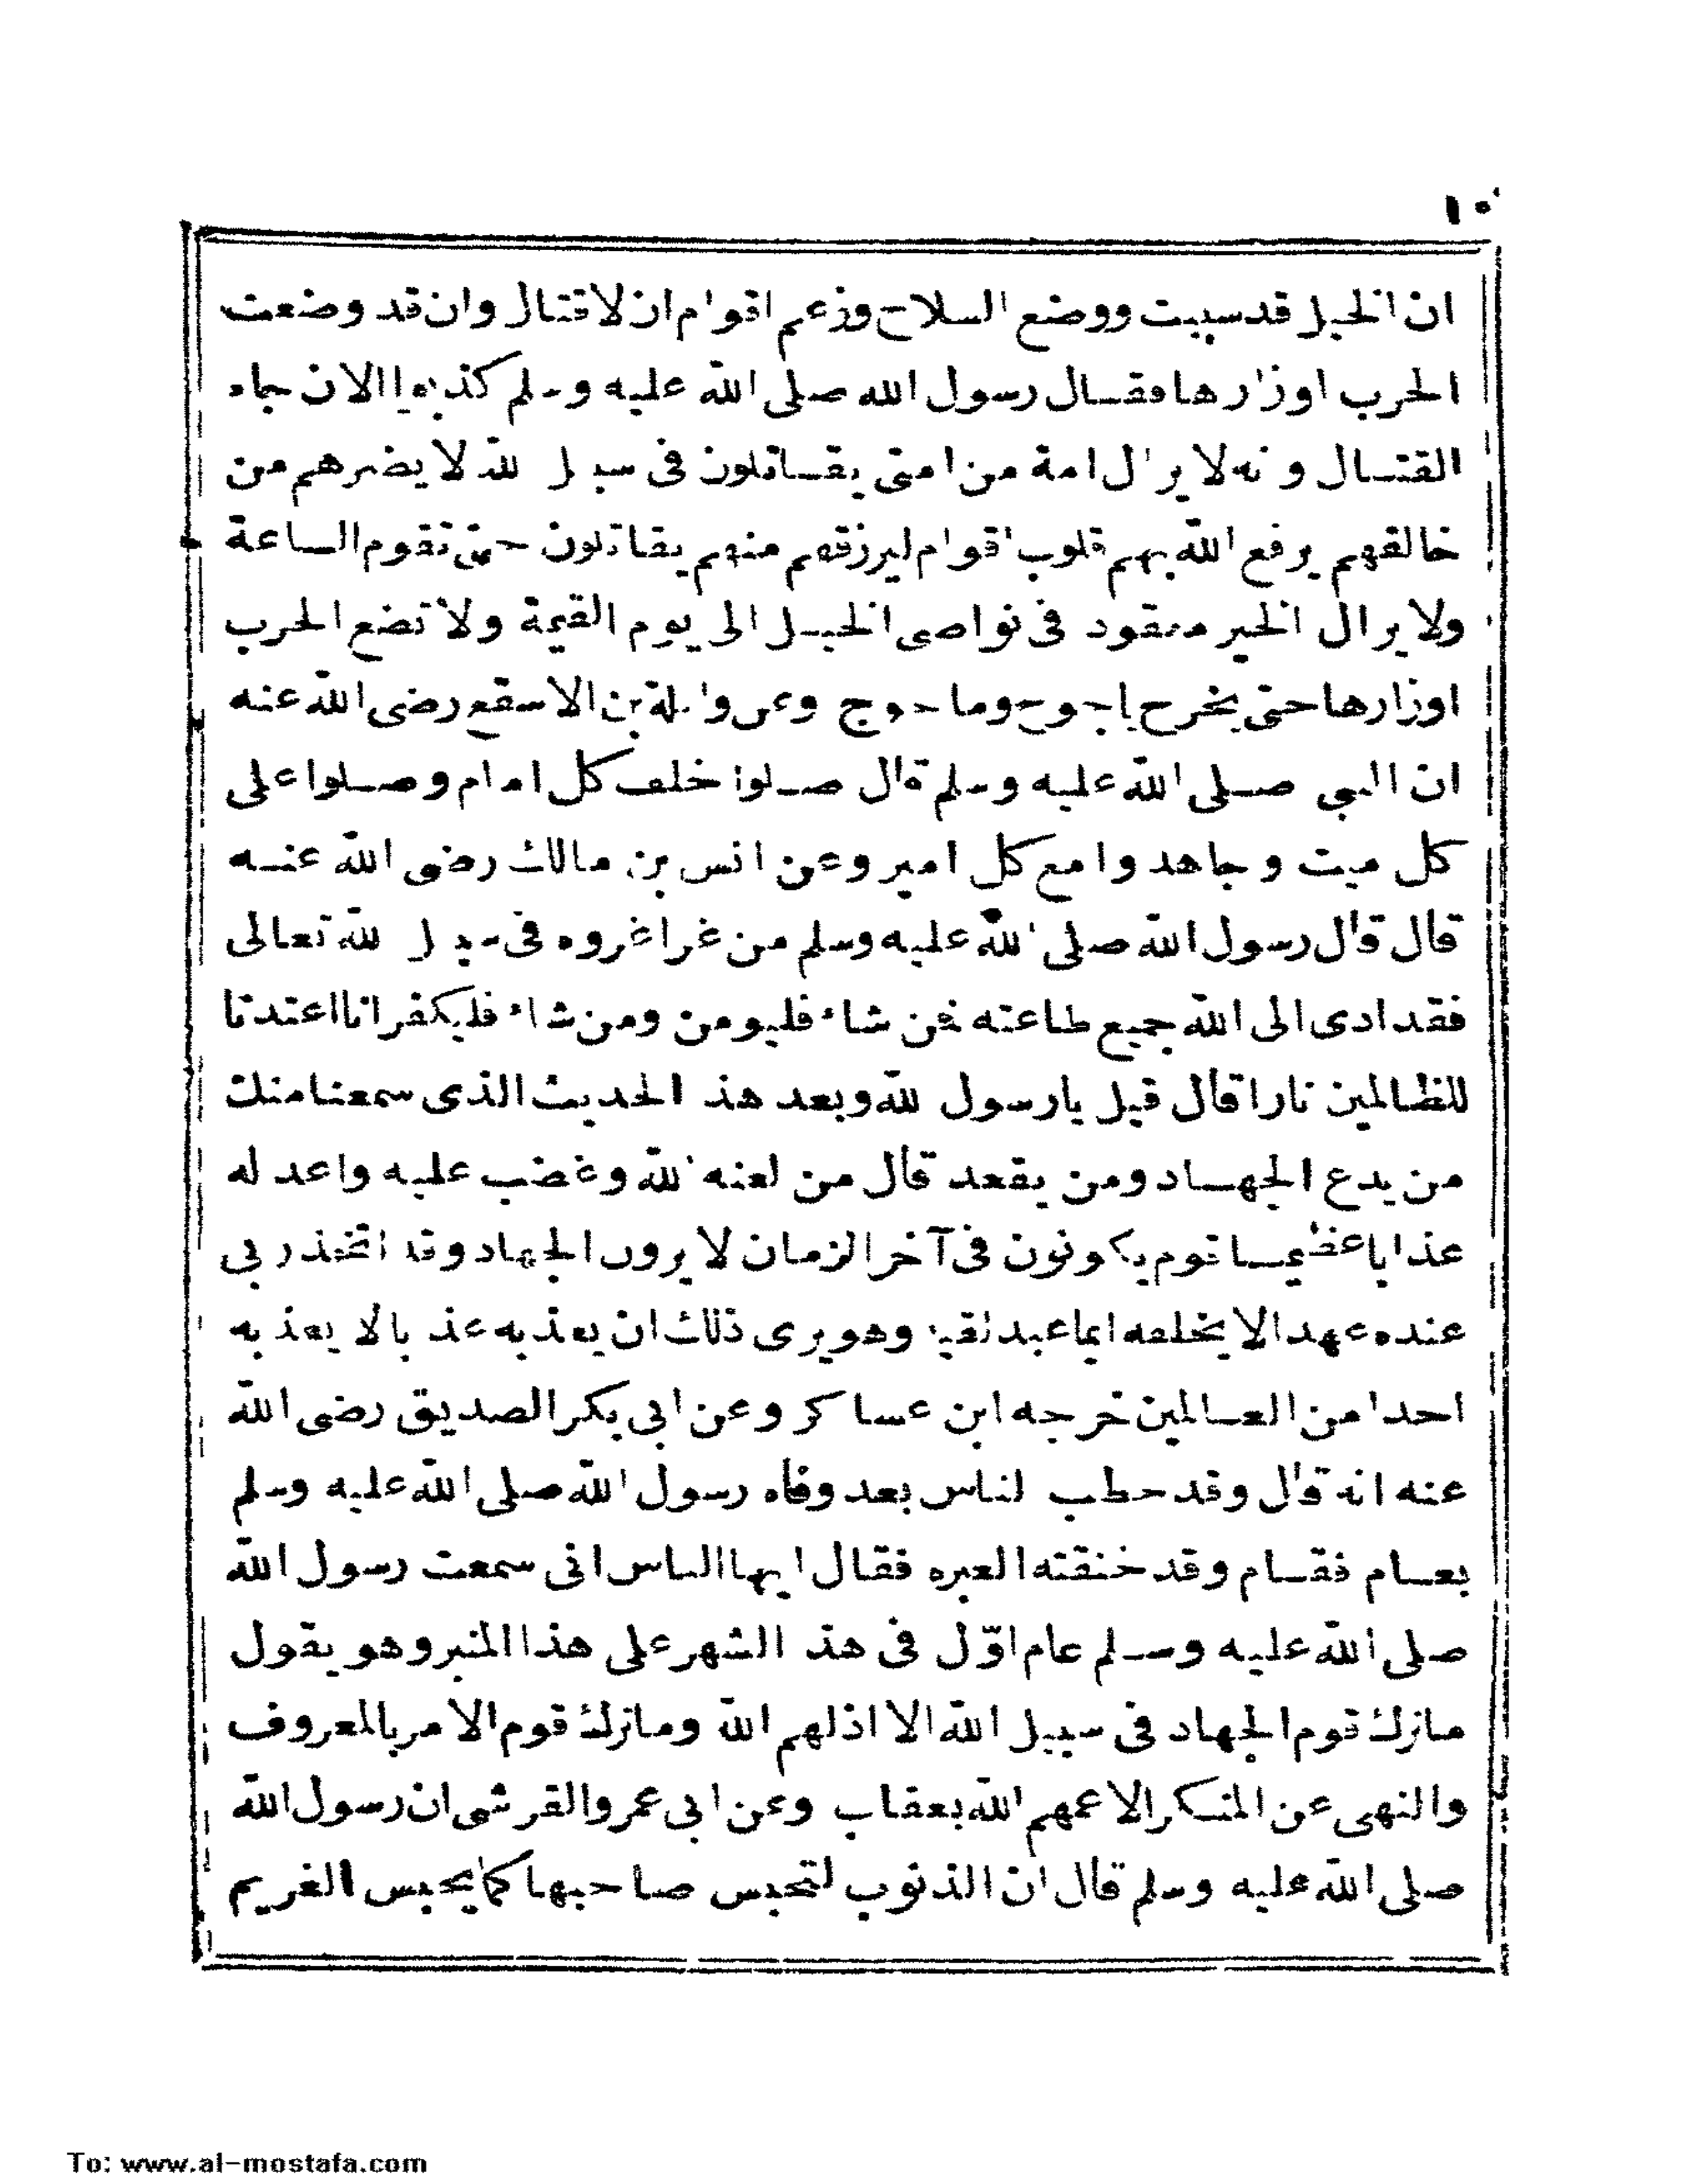 ١٠
ان الخيل قد سيبت ووضع السلاح وزعم اقوام ان لا قتال وان قد وضعت
الحرب اوزارها فقال رسول الله صلى الله عليه وسلم كذبوا الان جاء
القتال وانه لا يزال امة من امتى يقاتلون فى سبيل الله لا يضرهم من
خالفهم يرفع الله بهم قلوب اقوام ليرزقهم منهم يقاتلون حتى تقوم الساعة
ولا يزال الخير معقود فى نواصى الخيل الى يوم القيمة ولا تضع الحرب
اوزارها حتى يخرج ياجوج وماجوج وعن واثلة بن الاسقع رضى الله عنه
ان النبى صلى الله عليه وسلم قال صلوا خلف كل امام وصلوا على
كل ميت وجاهدوا مع كل امير وعن انس بن مالك رضى الله عنه
قال قال رسول الله صلى الله عليه وسلم من غزا غزوه فى سبيل الله تعالى
فقد ادى الى الله جميع طاعته فمن شاء فليومن ومن شاء فليكفر انا اعتدنا
للظالمين نارا قال قيل يا رسول الله وبعد هذ الحديث الذى سمعنا منك
من يدع الجهاد ومن يقعد قال من لعنه الله وغضب عليه واعد له
عذابا عظيما قوم يكونون فى آخر الزمان لا يرون الجهاد وقد اتخذ ربى
عنده عهدا لا يخلفه ايما عبد لقيه وهو يرى ذلك ان يعذبه عذابا لا يعذبه
احدا من العالمين خرجه ابن عساكر وعن ابى بكر الصديق رضى الله
عنه انه قال وقد خطب الناس بعد وفاه رسول الله صلى الله عليه وسلم
بعام فقام وقد خنقته العبره فقال ايها الناس انى سمعت رسول الله
صلى الله عليه وسلم عام اوّل فى هذ الشهر على هذا المنبر وهو يقول
ماترك قوم الجهاد فى سبيل الله الا اذلهم الله وماترك قوم الامر بالمعروف
والنهى عن المنكر الا عمهم الله بعقاب وعن ابى عمرو القرشى ان رسول الله
صلى الله عليه وسلم قال ان الذنوب لتحبس صاحبها كما يحبس الغريم
To: www.al-mostafa.com